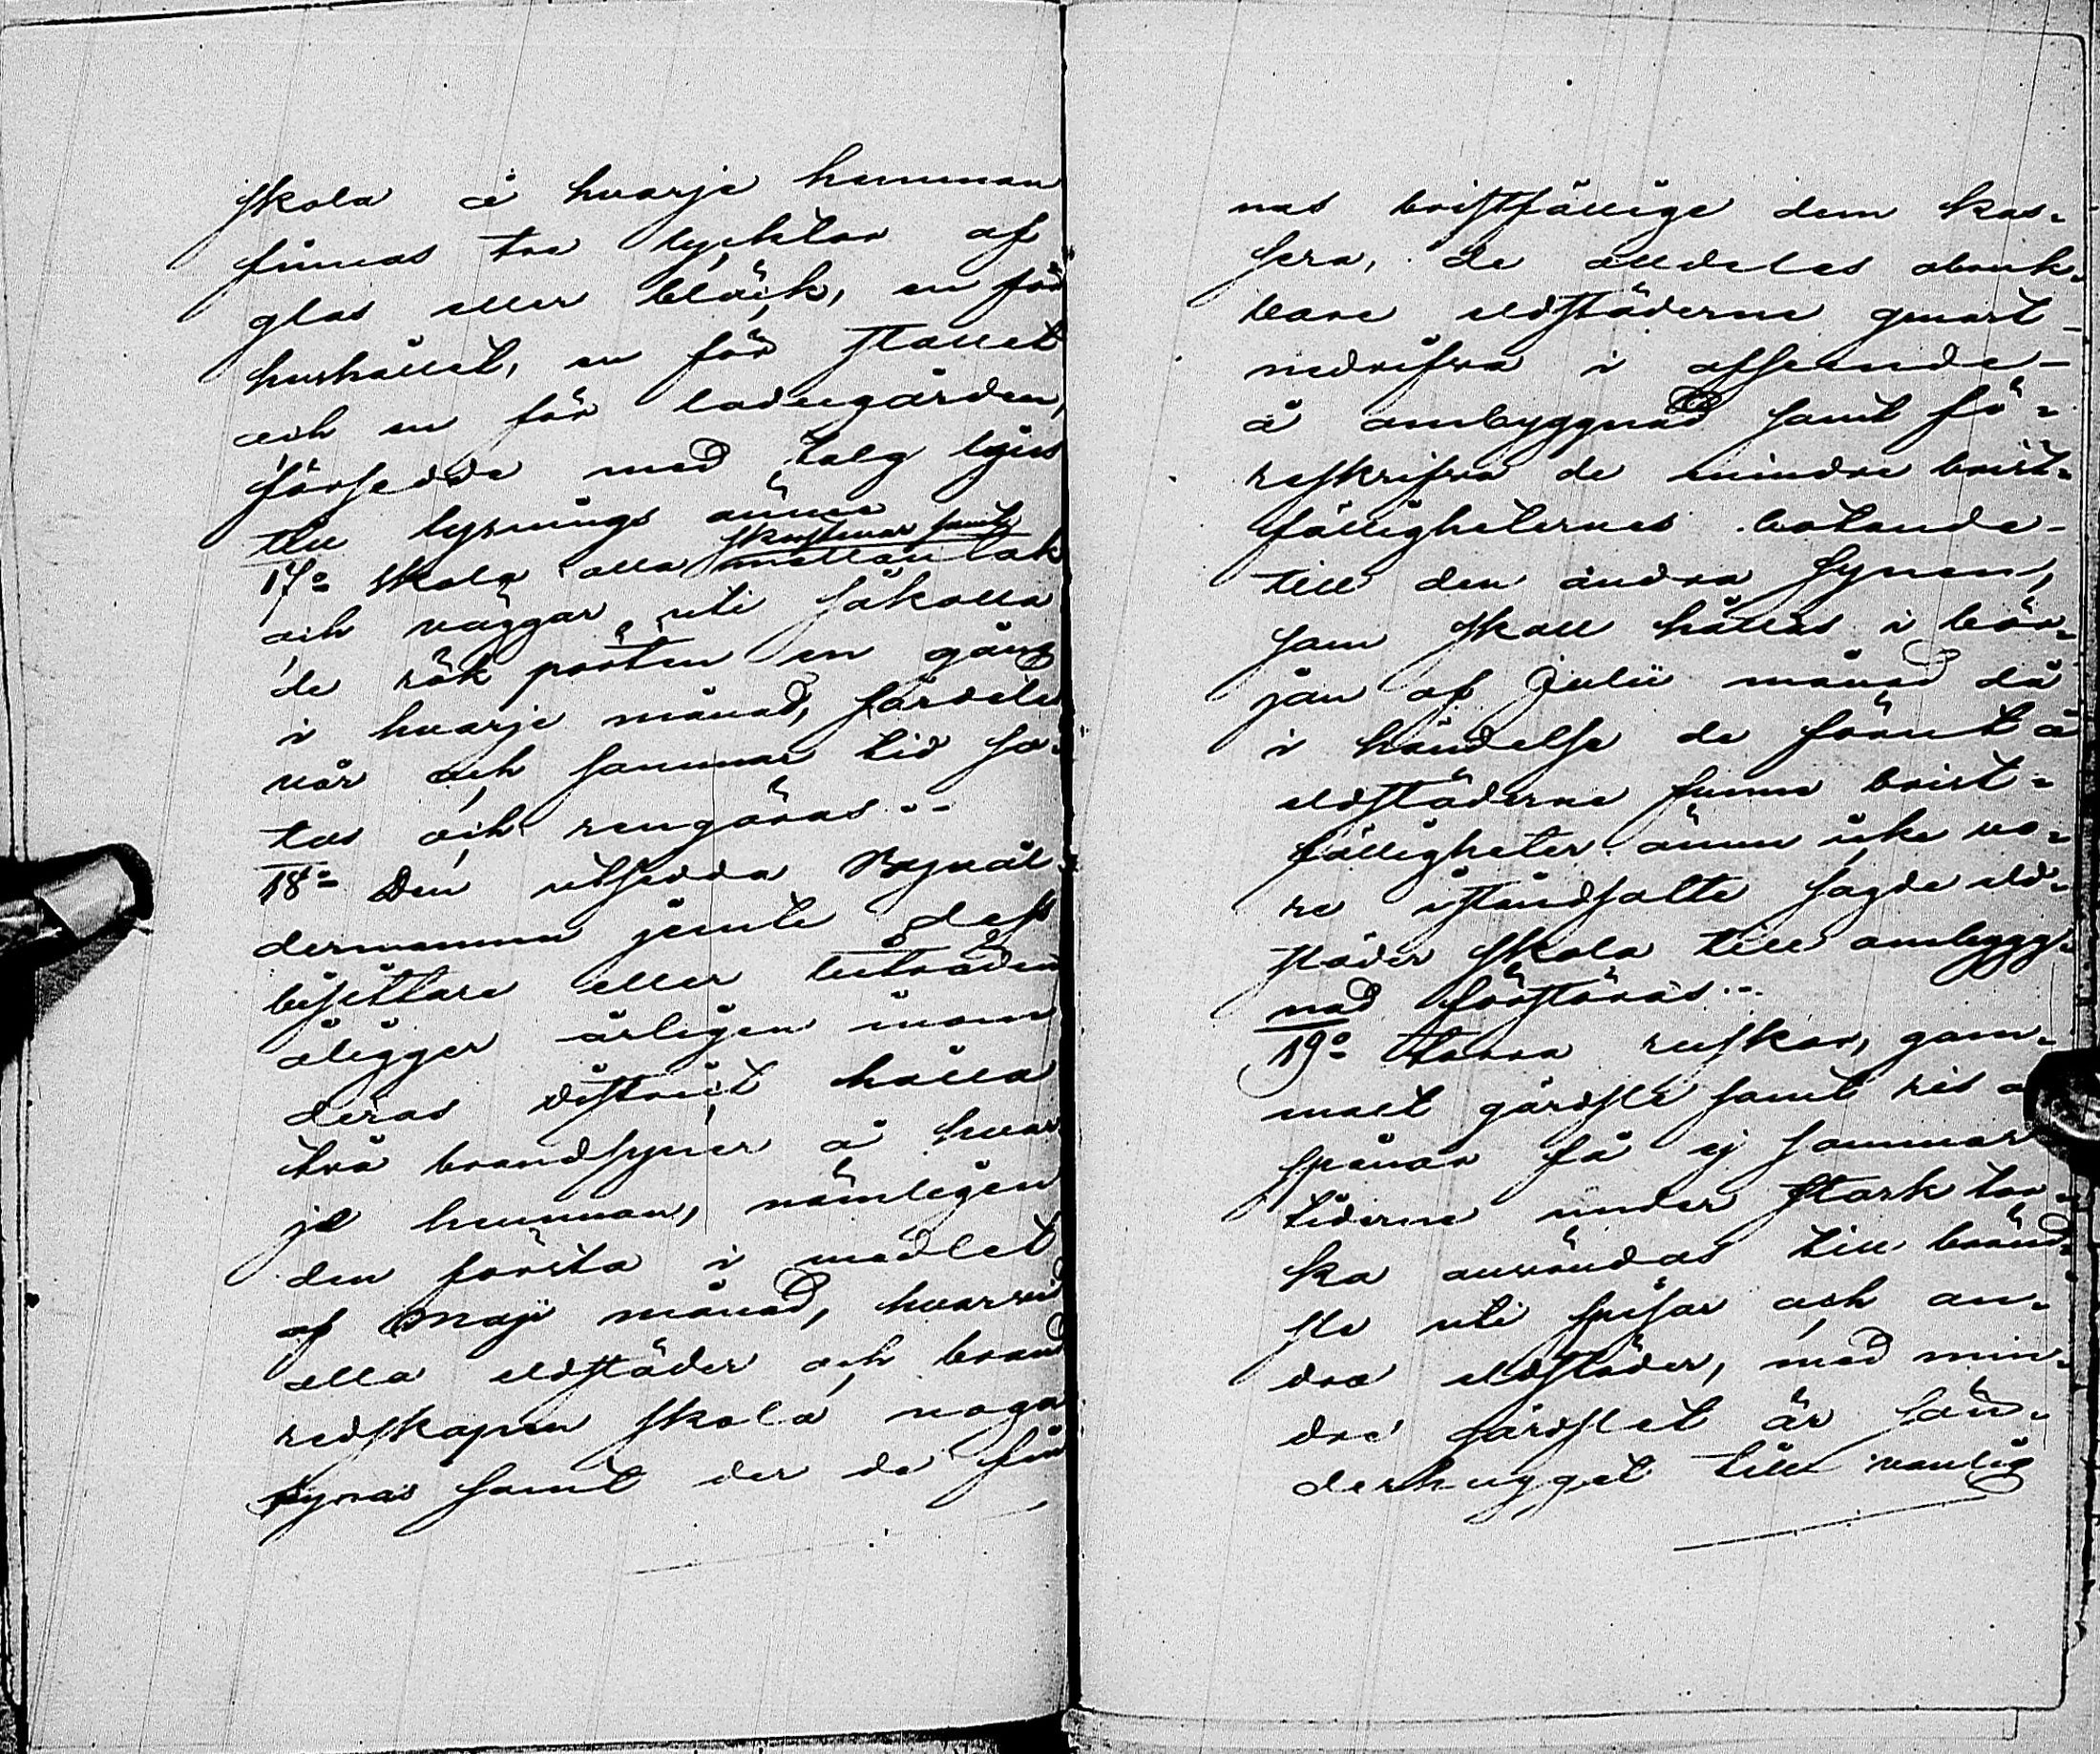 skola å hvarje hemman
finnas tre lycktor af
glas eller bläck, en för
hushållet, en för stallet
och en för ladugården,
försedde med talg ljus
till lysnings ämne
skorstenar samt
17o Skola alla mellan tak
och väggar uti såkalla
de rök pörten en gång
i hvarje månad, särdeles
vår och sommar tid so-
tas och rengöras..
18o Den utsedda Byåål-
dermannen jemte dess
bisittare eller biträden
åligger årligen inom
deras district hålla
två brandsyner å hvar
je hemman, nämligen
den första i medlet
af Maji månad, hvarvid
alla eldstäder och brand
redskapen skola noga
synas samt der de fin
nas bristfällige dem kas-
sera, de alldeles obruk-
bare eldstäderne genast
nedrifva i afseende
å ombyggnad samt fö-
reskrifva de mindre brist-
fälligheternes botande
till den andra Synen,
som skall hållas i bör-
jan af Julii månad då
i händelse de förut å
eldstäderne funne brist-
fälligheter ännu icke vo-
re iståndsatte sagde eld-
städer skola till ombygg-
nad förstöras..
19o Torra ruskor, gam-
malt gärdsle samt ris o
spånor få ej sommar
tiderne under stark tor-
ka användas till bränd-
sle uti spisar och an-
dra eldstäder, med min-
dre gärdslet är sön-
derhugget till vanlig